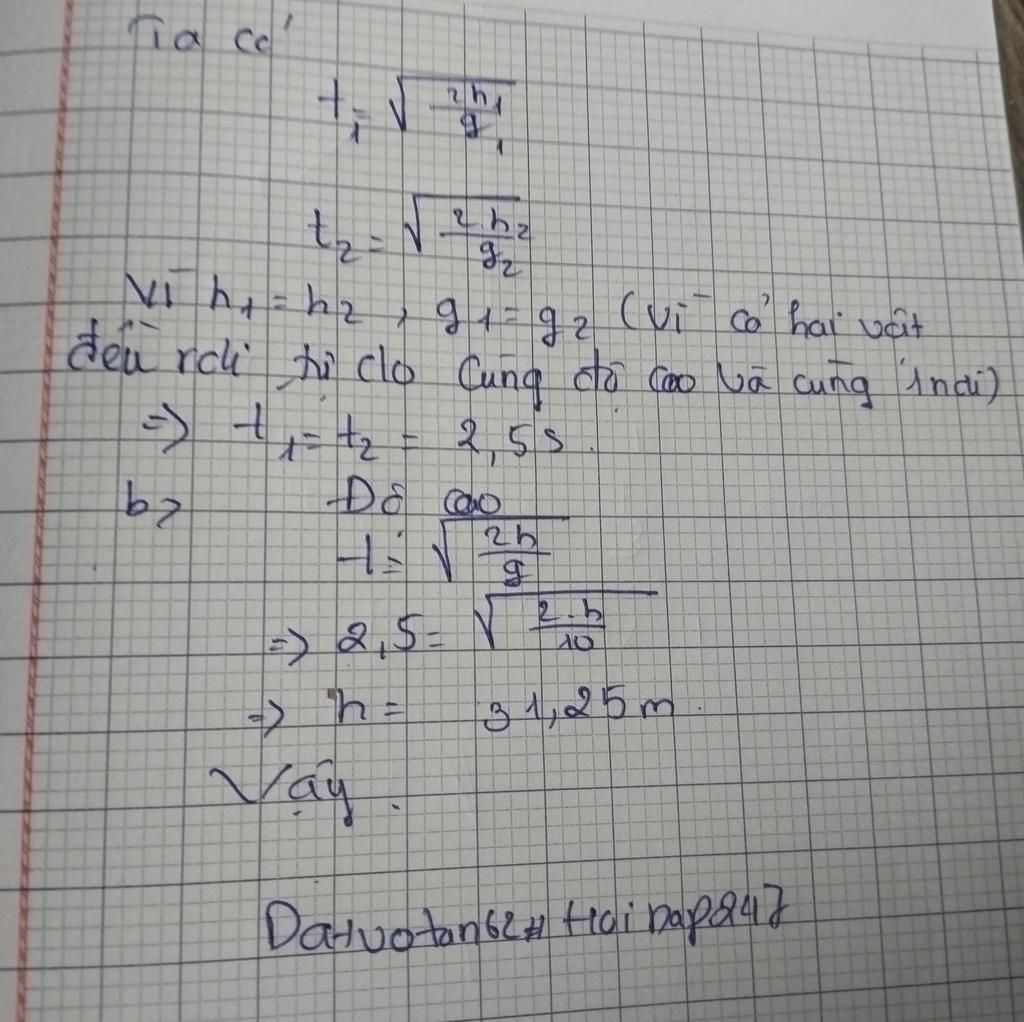 Ta có
t₁ = √(2h₁/g₁)
t₂ = √(2h₂/g₂)
Vì h₁ = h₂, g₁ = g₂ (Vì có hai vật
đều rơi tự do cùng độ cao và cùng 1 nơi)
=> t₁ = t₂ = 2,5s.
b> Độ cao
t = √(2h/g)
=> 2,5 = √(2.h/10)
=> h = 31,25m.
Vậy.